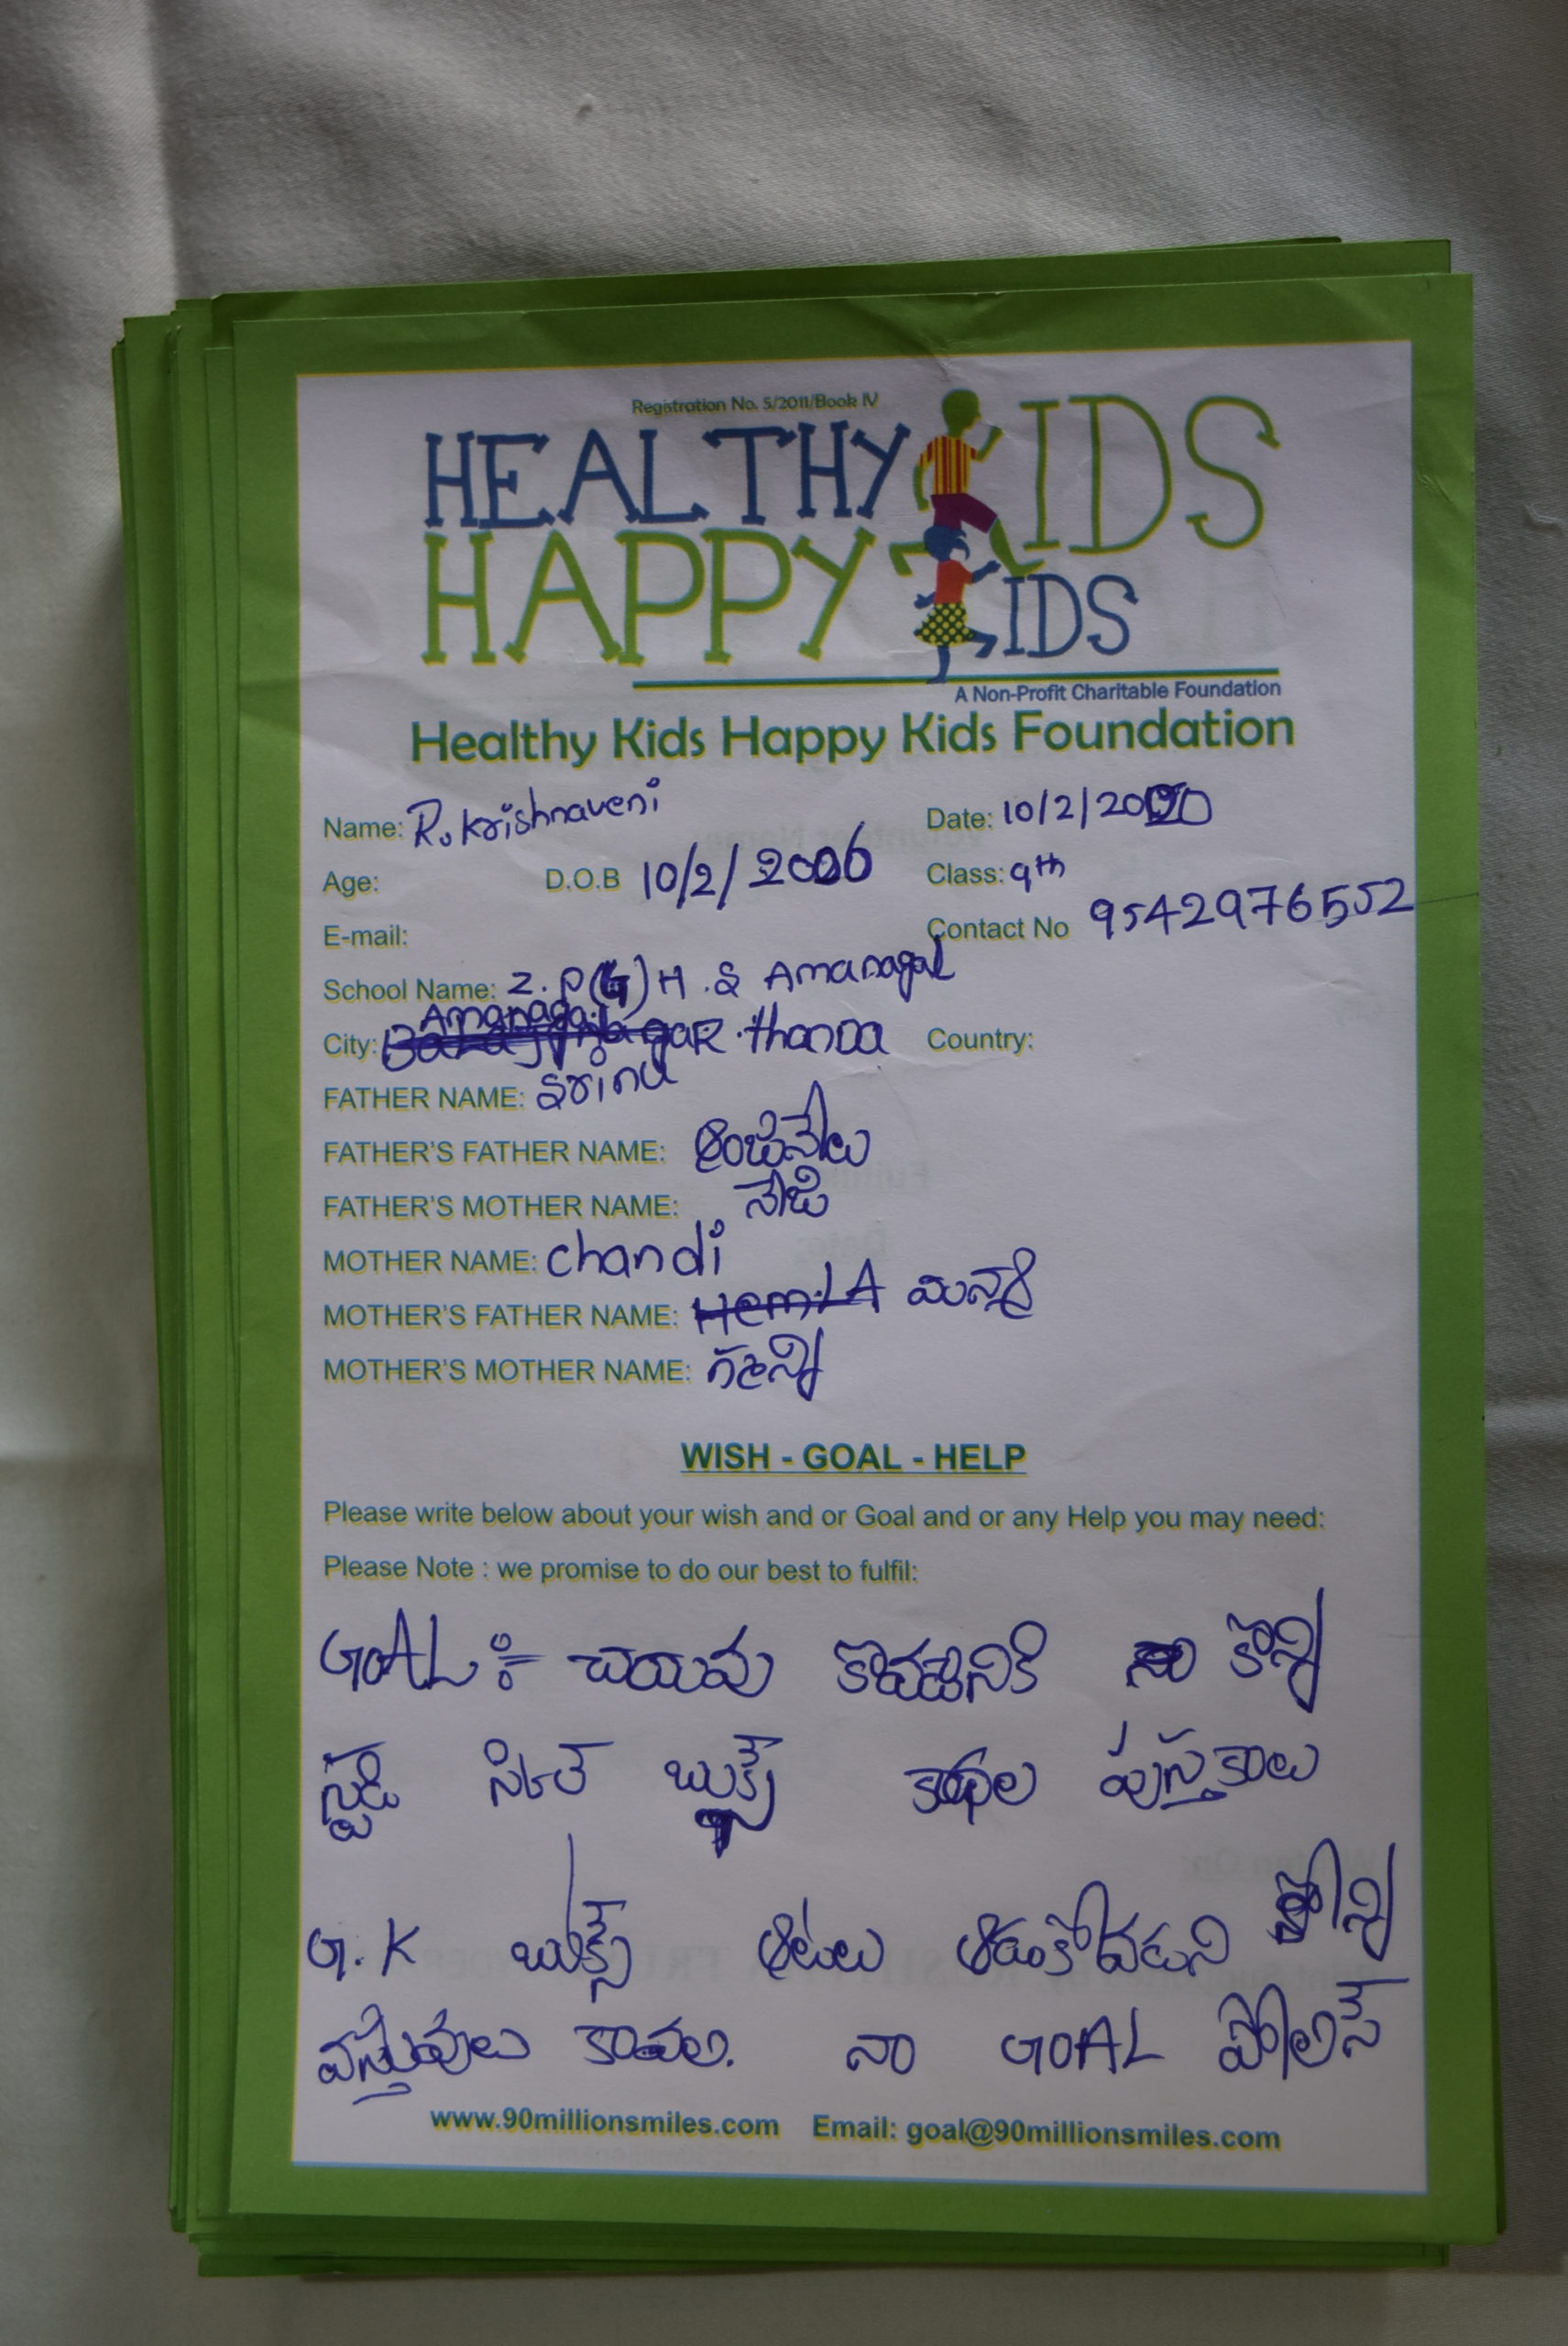 Registration No. 5/2011/Book IV
HEALTHY KIDS
HAPPY KIDS
A Non-Profit Charitable Foundation
Healthy Kids Happy Kids Foundation
Name: R. Krishnaveni Date: 10/2/2020
Age: D.O.B 10/2/2006 Class: 9th
E-mail: Contact No 9542976552
School Name: Z. P(G) H. S Amanagal
City: Amanagal thanDa Country:
FATHER NAME: Srinu
FATHER'S FATHER NAME:
FATHER'S MOTHER NAME: నేజి
MOTHER NAME: chandi
MOTHER'S FATHER NAME:
MOTHER'S MOTHER NAME:
WISH - GOAL - HELP
Please write below about your wish and or Goal and or any Help you may need:
Please Note : we promise to do our best to fulfil:
GOAL :- చదువు కొవడానికి కొన్ని
స్టడి బుక్స్ కాథల పుస్తకాలు
G.K బుక్స్ ఆటలు ఆడుకోవడని కొన్ని
వస్తువులు కావలి. నా GOAL పోలిసే
www.90millionsmiles.com Email: goal@90millionsmiles.com